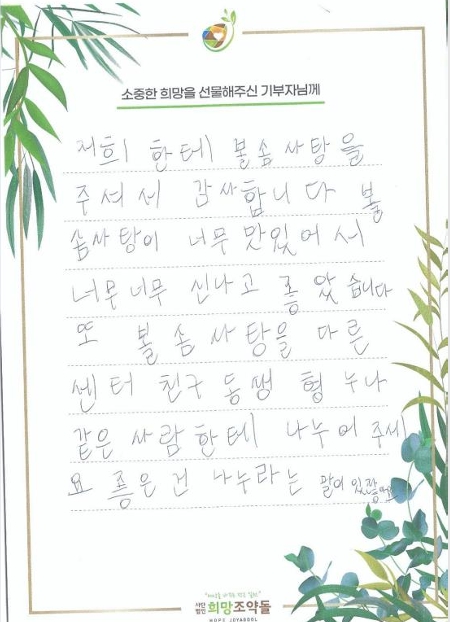 소중한 희망을 선물해주신 기부자님께
저희 한테 볼솜사탕을
주셔서 감사합니다 볼
솜사탕이 너무 맛있어서
너무너무 신나고 좋았습니다
또 볼솜사탕을 다른
센터 친구 동생 형 누나
같은 사람한테 나누어 주세
요 좋은 건 나누라는 말이 있잖아요
사단법인 희망조약돌
HOPE JOYAGDOL